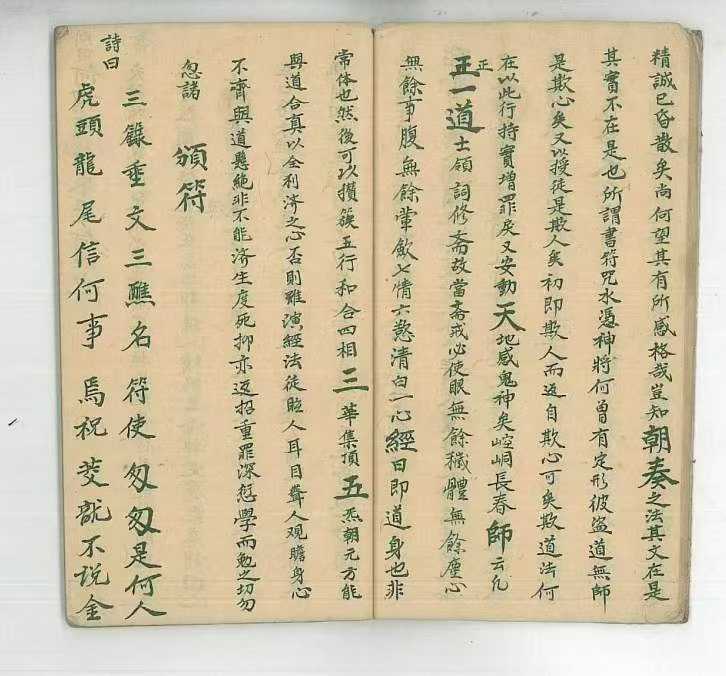 精誠已昏散矣尚何望其有所感格哉豈知朝奏之法其文在是
其實不在是也所謂書符咒水憑神將何曾有定形彼盜道無師
是欺心矣又以授徒是欺人矣初即欺人而返自欺心可矣欺道法何
在以此行持實增罪戾又安動天地感鬼神矣崆峒長春師云凡
正
正一道士領詞修斋故當斋戒必使眼無餘穢體無餘塵心
無餘事腹無餘葷歛七情六慾清白一心經曰即道身也非
常体也然後可以攢簇五行和合四相三華集頂五炁朝元方能
與道合真以全利済之心否則雖演經法徒眩人耳目聾人观瞻身心
不齊與道懸絶非不能済生度死抑亦返招重罪深愆學而勉之切勿
忽諸
頒符
三籙垂文三醮名符使匆匆是何人
詩曰
虎頭龍尾信何事焉祝不说金